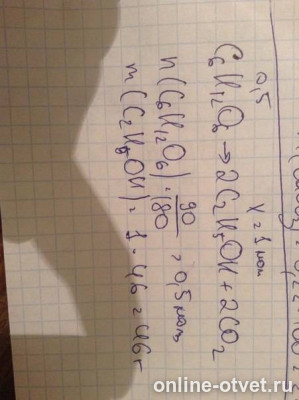 0,5 x = 1 моль
C₆H₁₂O₆ → 2C₂H₅OH + 2CO₂
n(C₆H₁₂O₆) = 90/180 = 0,5 моль
m(C₂H₅OH) = 1 · 46 = 46 г
online-otvet.ru